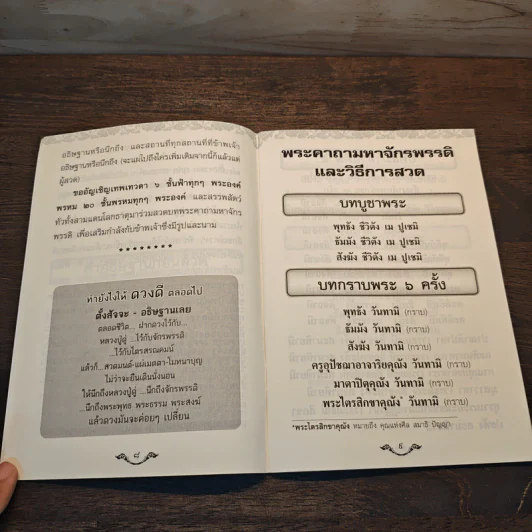 อธิษฐานหรือนึกถึง และสถานที่ทุกสถานที่ที่ข้าพเจ้า
อธิษฐานหรือนึกถึง (จะแผ่ไปถึงใครเพิ่มเติมจากนี้ก็แล้วแต่
ผู้สวด)
ขออัญเชิญเทพเทวดา ๖ ชั้นฟ้าทุกๆ พระองค์
พรหม ๒๐ พรหมทุกๆ พระองค์ และสรรพสัตว์
ทั่วทั้งสามแดนโลกธาตุมาร่วมสวดบทพระคาถามหาจักร
พรรดิ เพื่อเสริมกำลังกับข้าพเจ้าซึ่งมีรูปและนาม
ทำยังไงให้ ดวงดี ตลอดไป
ตั้งสัจจะ - อธิษฐานเลย
ตลอดชีวิต... ฝากดวงไว้กับ...
หลวงปู่ดู่ ...ไว้กับจักรพรรดิ
...ไว้กับไตรสรณคมน์
แล้วก็...สวดมนต์-แผ่เมตตา-โมทนาบุญ
ไม่ว่าจะยืนเดินนั่งนอน
ให้นึกถึงหลวงปู่ดู่ ...นึกถึงจักรพรรดิ
...นึกถึงพระพุทธ พระธรรม พระสงฆ์
แล้วดวงมันจะค่อยๆ เปลี่ยน
๘
พระคาถามหาจักรพรรดิ
และวิธีการสวด
บทบูชาพระ
พุทธัง ชีวิตัง เม ปูเชมิ
ธัมมัง ชีวิตัง เม ปูเชมิ
สังฆัง ชีวิตัง เม ปูเชมิ
บทกราบพระ ๖ ครั้ง
พุทธัง วันทามิ (กราบ)
ธัมมัง วันทามิ (กราบ)
สังฆัง วันทามิ (กราบ)
ครูอุปัชฌาอาจาริยคุณัง วันทามิ (กราบ)
มาตาปิตุคุณัง วันทามิ (กราบ)
พระไตรสิกขาคุณัง* วันทามิ (กราบ)
*พระไตรสิกขาคุณัง หมายถึง คุณแห่งศีล สมาธิ ปัญญา
๙